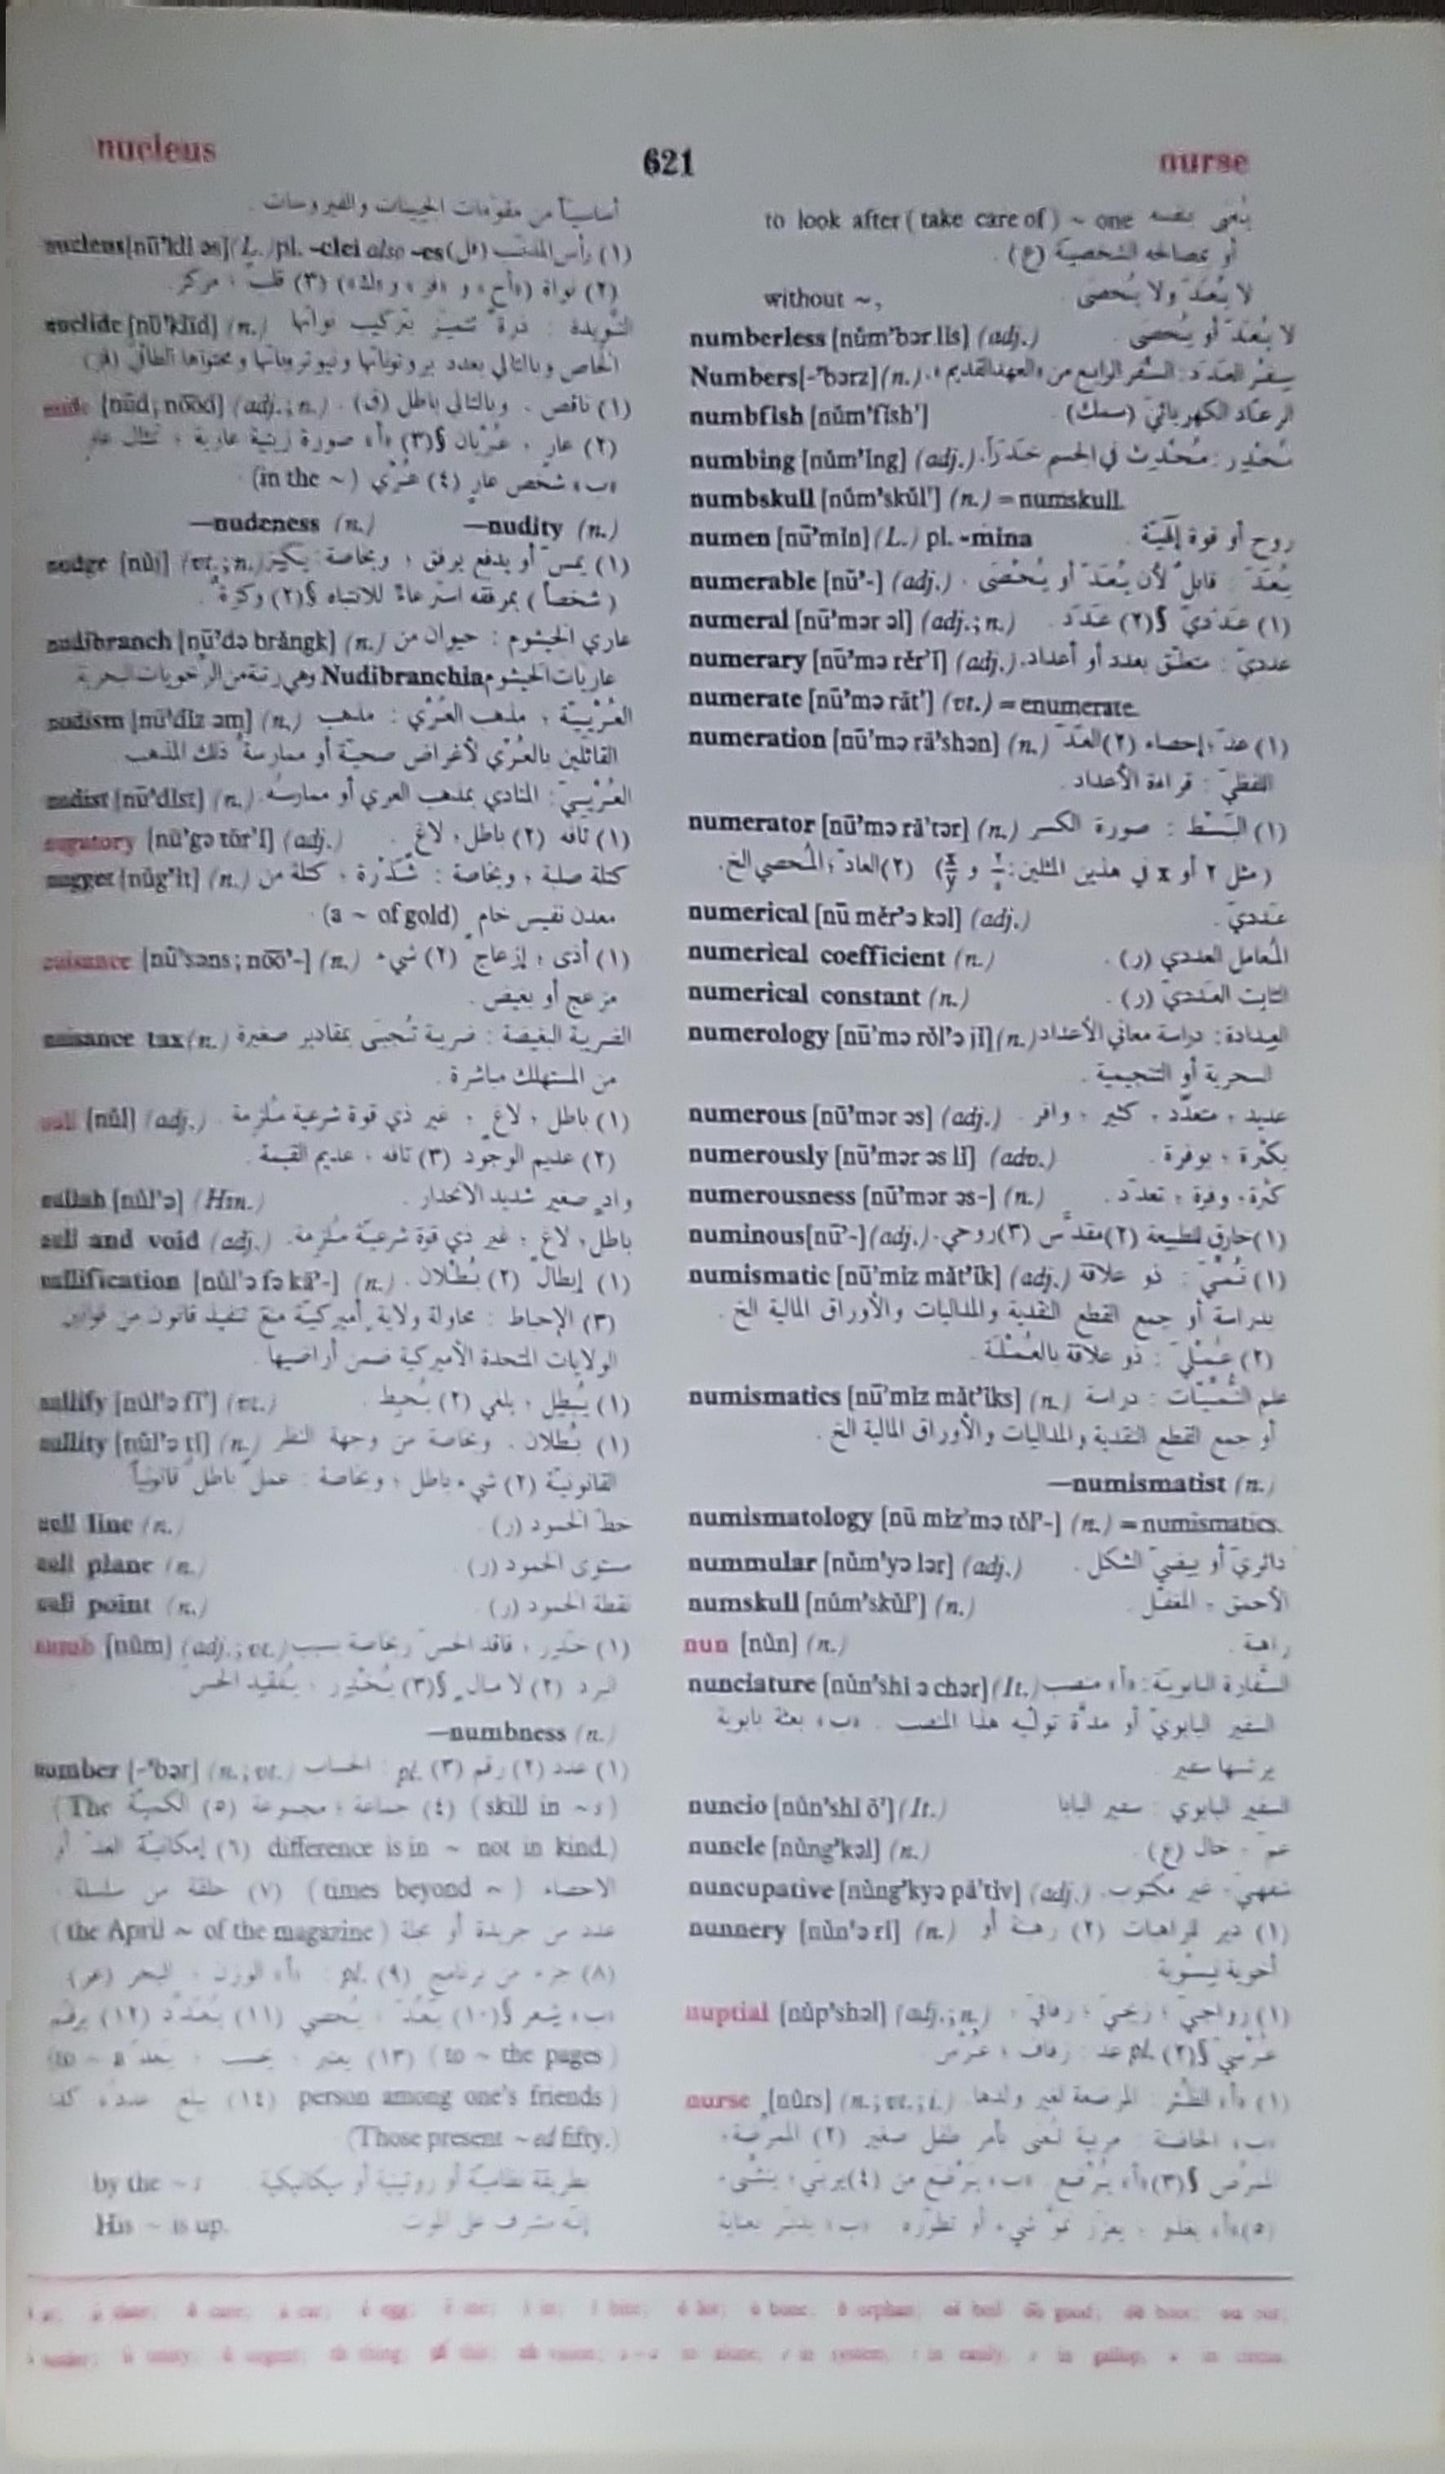 nucleus 621 nurse
أساسياً من مقوّمات الجينات والفيروسات .
nucleus [nū'kli əs] (L.) pl. -clei also -es (فل) رأس المذنب (١)
(٢) نواة («أح» و «فز» و «ك») (٣) قلب ؛ مركز
nuclide [nū'klīd] (n.) النُّويدة : ذرة تتميز بتركيب نواتها
الخاص وبالتالي بعدد بروتوناتها ونيوتروناتها ومحتواها الطاقيّ (فز)
nude [nūd; nōōd] (adj.; n.) (١) ناقص . وبالتالي باطل (ق) .
(٢) عارٍ ، عُرْيان §(٣) «أ» صورة زيتية عارية ؛ تمثال عارٍ
«ب» شخص عارٍ (٤) عُرْي (in the ~)
—nudeness (n.) —nudity (n.)
nudge [nŭj] (vt.; n.) (١) يمسّ أو يدفع برفق ؛ وبخاصة : يَكِزُ
(شخصاً) بمرفقه استرعاءً للانتباه §(٢) وكزةٌ .
nudibranch [nū'də brăngk] (n.) عاري الخيشوم : حيوان من
عاريات الخيشوم Nudibranchia وهي رتبة من الرخويات البحرية
nudism [nū'dĭz əm] (n.) العُرْييّة ، مذهب العُرْي : مذهب
القائلين بالعُرْي لأغراض صحيّة أو ممارسةُ ذلك المذهب
nudist [nū'dĭst] (n.) العُرْييّ : المنادي بمذهب العري أو ممارسُه .
nugatory [nū'gə tôr'ĭ] (adj.) (١) تافه (٢) باطل ، لاغٍ .
nugget [nŭg'ĭt] (n.) كتلة صلبة ، وبخاصة : شَذْرَة ، كتلة من
معدن نفيس خام (a ~ of gold) .
nuisance [nū'səns; nōō'-] (n.) (١) أذى ؛ إزعاج (٢) شيء
مزعج أو بغيض .
nuisance tax (n.) الضريبة البغيضة : ضريبة تُجبَى بمقادير صغيرة
من المستهلك مباشرة .
null [nŭl] (adj.) (١) باطل ، لاغٍ ، غير ذي قوة شرعية مُلزِمة .
(٢) عديم الوجود (٣) تافه ، عديم القيمة .
nullah [nŭl'ə] (Hin.) وادٍ صغير شديد الانحدار .
null and void (adj.) باطل ، لاغٍ ، غير ذي قوة شرعيّة مُلزِمة .
nullification [nŭl'ə fə kā'-] (n.) (١) إبطالٌ (٢) بُطْلان .
(٣) الإحباط : محاولة ولاية أميركيّة منعَ تنفيذ قانون من قوانين
الولايات المتحدة الأميركية ضمن أراضيها .
nullify [nŭl'ə fī'] (vt.) (١) يُبطِل ، يلغي (٢) يُحبِط .
nullity [nŭl'ə tĭ] (n.) (١) بُطلان . وبخاصة من وجهة النظر
القانونيّة (٢) شيء باطل ؛ وبخاصة : عملٌ باطلٌ قانونياً
null line (n.) خطّ الخمود (ر) .
null plane (n.) مستوى الخمود (ر)
null point (n.) نقطة الخمود (ر) .
numb [nŭm] (adj.; vt.) (١) خَدِر ، فاقد الحسّ وبخاصة بسبب
البرد (٢) لا مبالٍ §(٣) يُخَدِّر ، يُفقِد الحسّ
—numbness (n.)
number [-'bər] (n.; vt.) (١) عدد (٢) رقم (٣) pl. : الحساب
(skill in ~s) (٤) جماعة ؛ مجموعة (٥) الكميّة (The
difference is in ~ not in kind.) (٦) إمكانيّة العدّ أو
الاحصاء (times beyond ~) (٧) حلقة من سلسلة .
عدد من جريدة أو مجلة (the April ~ of the magazine)
(٨) جزء من برنامج (٩) pl. : «أ» الوزن ، البحر (عر)
«ب» شِعر §(١٠) يَعُدّ ، يُحصي (١١) يُعَدِّد (١٢) يرقّم
(to ~ the pages) (١٣) يعتبر ، يحسب ، يَعُدّ (to ~ a
person among one's friends) (١٤) يبلغ عددُه كذا
(Those present ~ed fifty.)
by the ~s بطريقة نظاميّة أو روتينية أو ميكانيكية
His ~ is up. إنّه مشرف على الموت
to look after (take care of) ~ one يُعْنى بنفسه
أو بمصالحه الشخصيّة (ع) .
without ~, لا يُعَدّ ولا يُحصَى .
numberless [nŭm'bər lis] (adj.) لا يُعَدّ أو يُحصَى .
Numbers [-'bərz] (n.) سِفْر العدَد : السِّفر الرابع من «العهد القديم» .
numbfish [nŭm'fĭsh'] الرعّاد الكهربائيّ (سمك) .
numbing [nŭm'ĭng] (adj.) مُخدِّر : مُحْدِث في الجسم خَدَراً .
numbskull [nŭm'skŭl'] (n.) = numskull.
numen [nū'mĭn] (L.) pl. -mina روح أو قوة إلهيّة .
numerable [nū'-] (adj.) يُعَدّ : قابلٌ لأن يُعَدّ أو يُحْصَى .
numeral [nū'mər əl] (adj.; n.) (١) عَدَديّ §(٢) عَدَد .
numerary [nū'mə rĕr'ĭ] (adj.) عدديّ : متعلّق بعدد أو أعداد .
numerate [nū'mə rāt'] (vt.) = enumerate.
numeration [nū'mə rā'shən] (n.) (١) عدّ ؛ إحصاء (٢) العَدّ
اللفظيّ : قراءة الأعداد .
numerator [nū'mə rā'tər] (n.) (١) البَسْط : صورة الكسر
(مثل ٢ أو x في هذين المثلين : و x/y) (٢) العادّ ؛ المُحصي الخ .
numerical [nū mĕr'ə kəl] (adj.) عَدَديّ .
numerical coefficient (n.) المُعامل العددي (ر) .
numerical constant (n.) الثابت العَدَديّ (ر) .
numerology [nū'mə rŏl'ə jĭ] (n.) العِدادة : دراسة معاني الأعداد
السحرية أو التنجيمية .
numerous [nū'mər əs] (adj.) عديد ، متعدّد ، كثير ، وافر .
numerously [nū'mər əs lĭ] (adv.) بكثْرة ، بوفرة .
numerousness [nū'mər əs-] (n.) كثرة ، وفرة ، تعدّد .
numinous [nū'-] (adj.) (١) خارق للطبيعة (٢) مقدَّس (٣) روحي .
numismatic [nū'mĭz măt'ĭk] (adj.) (١) نُمِّيّ : ذو علاقة
بدراسة أو جمع القطع النقدية والمداليات والأوراق المالية الخ .
(٢) عُمْليّ : ذو علاقة بالعُمْلَة .
numismatics [nū'mĭz măt'ĭks] (n.) علم النُّمِّيّات : دراسة
أو جمع القطع النقدية والمداليات والأوراق المالية الخ .
—numismatist (n.)
numismatology [nū mĭz'mə tŏl'-] (n.) = numismatics.
nummular [nŭm'yə lər] (adj.) دائريّ أو بيضيّ الشكل .
numskull [nŭm'skŭl'] (n.) الأحمق ، المغفّل .
nun [nŭn] (n.) راهبة .
nunciature [nŭn'shĭ ə chər] (It.) السِّفارة البابويّة : «أ» منصب
السفير البابويّ أو مدّة تولّيه هذا المنصب . «ب» بعثة بابوية
يرئسها سفير
nuncio [nŭn'shĭ ō'] (It.) السفير البابوي : سفير البابا
nuncle [nŭng'kəl] (n.) عمّ ، خال (ع) .
nuncupative [nŭng'kyə pā'tĭv] (adj.) شفهيّ ، غير مكتوب .
nunnery [nŭn'ə rĭ] (n.) (١) دير للراهبات (٢) رهبنة أو
أخوية نِسْوية
nuptial [nŭp'shəl] (adj.; n.) (١) زواجيّ ؛ زيجيّ ؛ زفافيّ ،
عُرْسيّ §(٢) pl. عد : زفاف ؛ عُرْس .
nurse [nûrs] (n.; vt.; i.) (١) «أ» الظِّئر : المرضعة لغير ولدها
«ب» الحاضنة : مربية تُعنى بأمر طفل صغير (٢) الممرِّضة ،
الممرِّض §(٣) «أ» يُرْضِع «ب» يَرْضَع من (٤) يربّي ، ينشّىء
(٥) «أ» يغذو ؛ يعزّز نموّ شيء أو تطوّره «ب» يدبّر بعناية